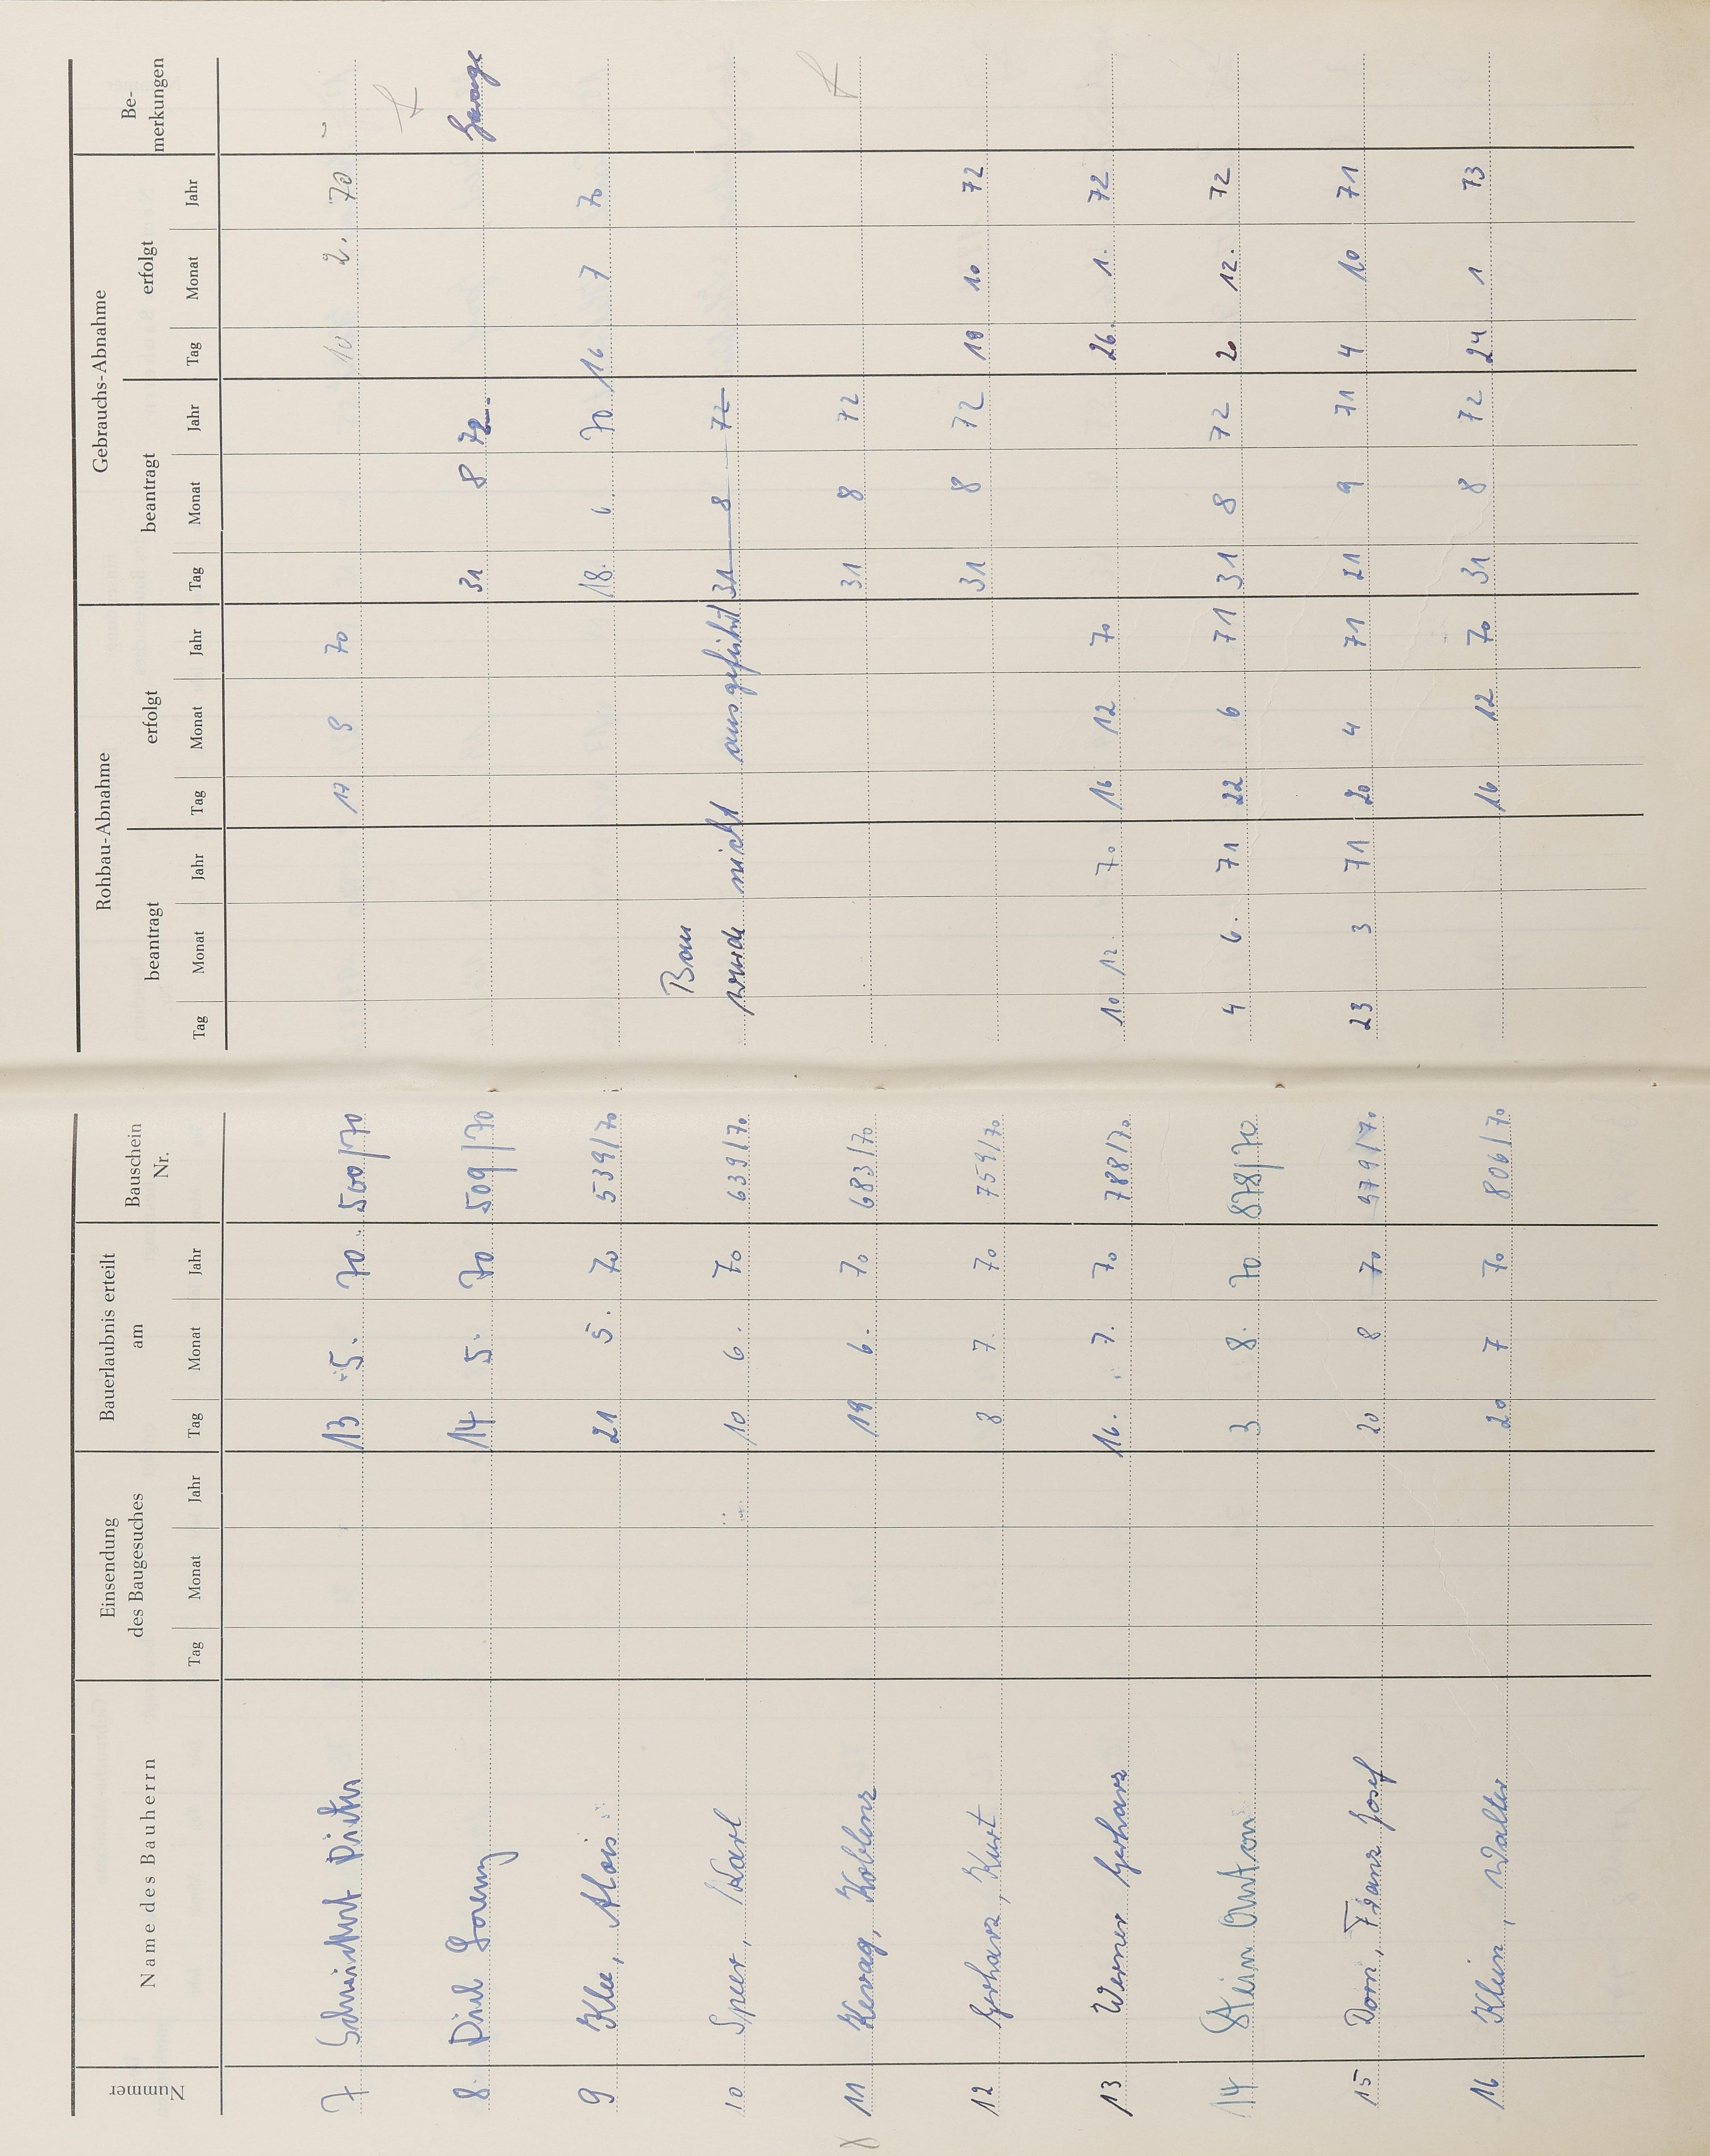 Nummer Name des Bauherrn Einsendung des Baugesuches Bauerlaubnis erteilt am Bauschein Nr. Rohbau-Abnahme Gebrauchs-Abnahme Be-merkungen
beantragt erfolgt beantragt erfolgt
Tag Monat Jahr Tag Monat Jahr Tag Monat Jahr Tag Monat Jahr Tag Monat Jahr Tag Monat Jahr
7 Dieter 13 5. 70 500/70 17 8 70 10 2. 70
8. Diel Lorenz 14 5. 70 509/70 31 8 72. Garage
9 Klee, Alois 21 5. 70 539/70 18. 6. 70 16 7 70
10 Speer, Karl 10 6. 70 639/70 Bau
wurde nicht ausgeführt 31 8 72
11 Kevag, Koblenz 19 6. 70 683/70 31 8 72
12 Gerharz, Kurt 8 7. 70 759/70 31 8 72 19 10 72
13 Werner Gerharz 16. 7. 70 788/70 10 12. 70 16 12 70 26. 1. 72
14 Stein Anton 3 8. 70 878/70 4 6. 71 22 6 71 31 8 72 20 12. 72
15 Dorn, Franz Josef 20 8 70 979/70 23 3 71 20 4 71 21 9 71 4 10 71
16 Klein, Walter 20 7 70 806/70 16 12 70 31 8 72 24 1 73